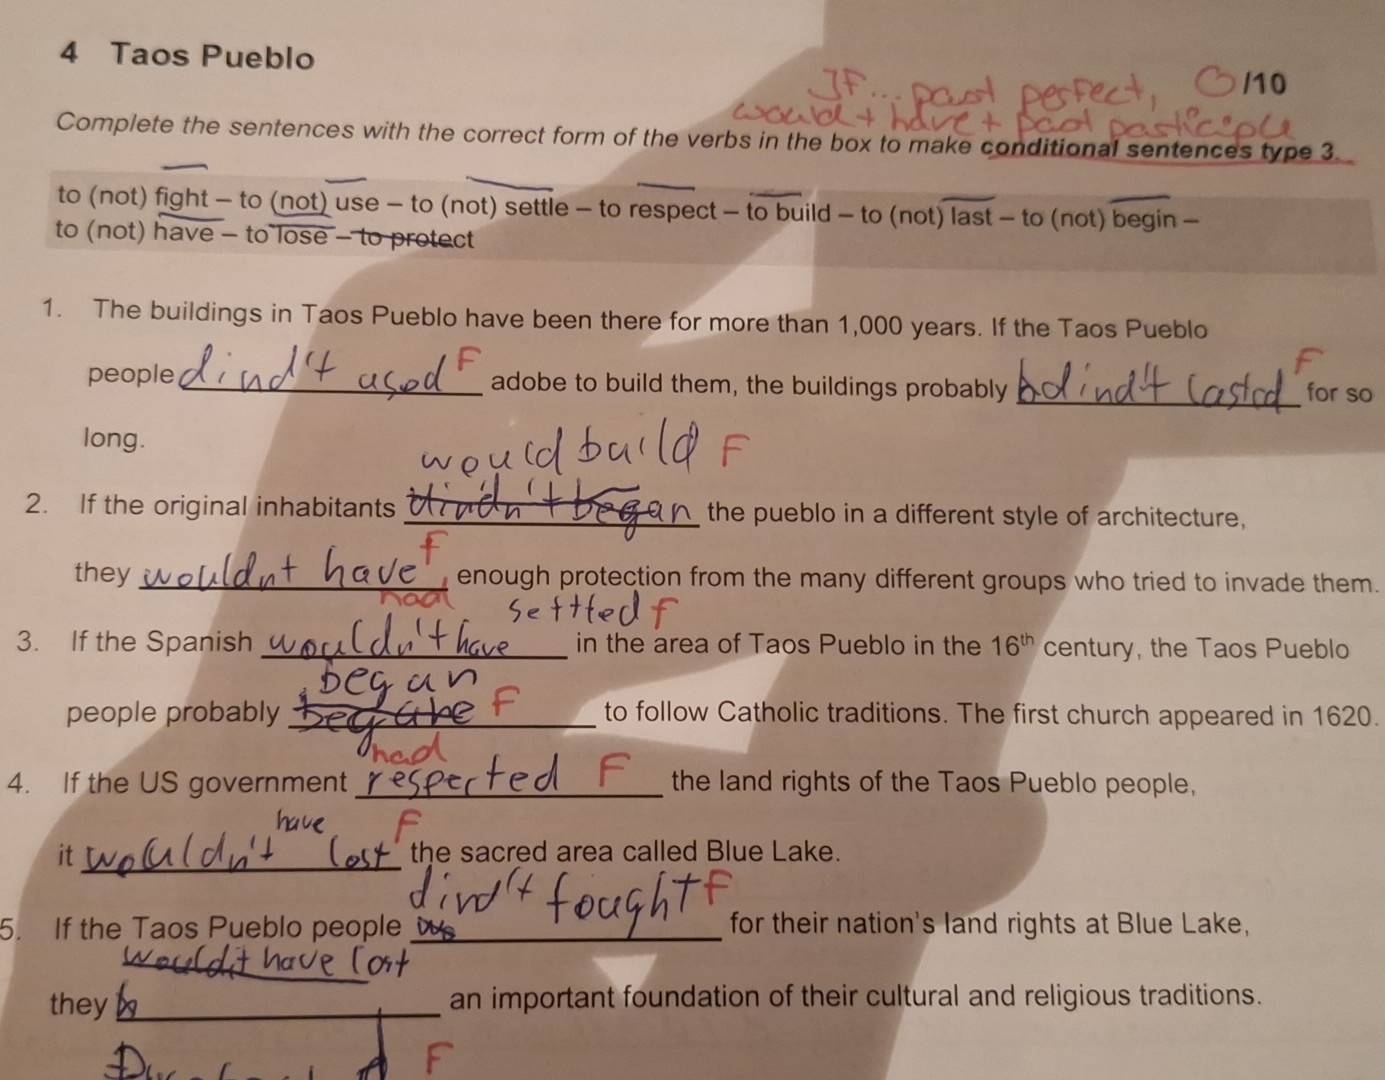 4 Taos Pueblo
If... past perfect, 0/10
would + have + past participle
Complete the sentences with the correct form of the verbs in the box to make conditional sentences type 3.
to (not) fight – to (not) use – to (not) settle – to respect – to build – to (not) last – to (not) begin –
to (not) have – to lose – to protect
1. The buildings in Taos Pueblo have been there for more than 1,000 years. If the Taos Pueblo
people dind't used F adobe to build them, the buildings probably dind't lasted F for so
long.
would build F
2. If the original inhabitants dindn't began the pueblo in a different style of architecture,
they wouldnt have F enough protection from the many different groups who tried to invade them.
had
settled F
3. If the Spanish wouldn't have in the area of Taos Pueblo in the 16th century, the Taos Pueblo
began
people probably F to follow Catholic traditions. The first church appeared in 1620.
had
4. If the US government respected F the land rights of the Taos Pueblo people,
have F
it wouldn't lost the sacred area called Blue Lake.
dind't fought F
5. If the Taos Pueblo people for their nation's land rights at Blue Lake,
would't have lost
they an important foundation of their cultural and religious traditions.
F